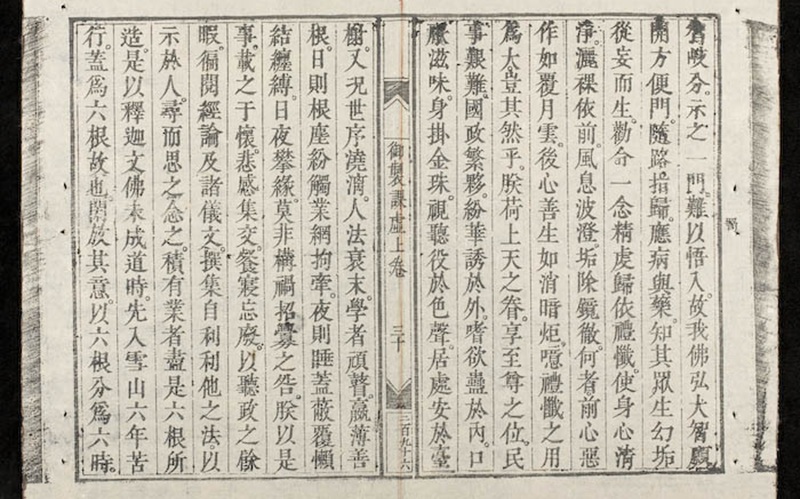 岐分。示之一門。難以悟入。故我佛弘大智
開方便門。隨路指歸。應病與藥。知其眾生幻垢
從妄而生。勸令一念精虔歸依禮懺。使身心清
淨。灑裸依前。風息波澄。垢除鏡徹。何者前心惡
作如覆月雲。後心善生如消暗炬。噫禮懺之用
爲大豈其然乎。朕荷上天之眷。享至尊之位。民
事艱難。國政繁夥。紛華誘於外。嗜欲蠱於內。口
厭滋味。身掛金珠。視聽役於色聲。居處安於臺
御製課虛上卷　三十　二百九十六
榭。又況世序澆漓。人法衰末。學者頑瞽。嬴薄善
根。日則根塵紛觸業網拘牽。夜則睡蓋蔽覆懶
結纏縛。日夜攀緣。莫非構禍招釁之咎。朕以是
事。載之于懷。悲感集交。餐寢忘廢。以聽政之餘
暇。徧閱經論及諸儀文。撰集自利利他之法以
示於人。尋而思之念之。積有業者盡是六根所
造。是以釋迦文佛未成道時。先入雪山六年苦
行。蓋爲六根故也。其意。以六根分爲六時。